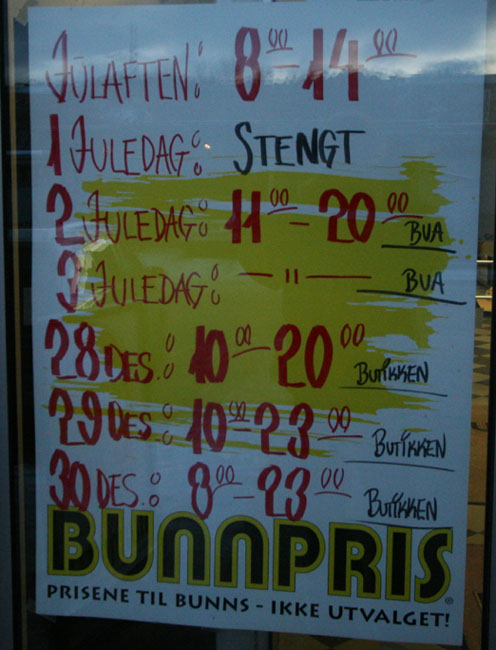 JULAFTEN: 800-1400
1 JULEDAG: STENGT
2 JULEDAG: 1100-2000 BUA
3 JULEDAG: — " — BUA
28 DES.: 1000-20 00 BUTIKKEN
29 DES: 10 00-23 00 BUTIKKEN
30 DES.: 8 00-23 00 BUTIKKEN
BUNNPRIS®
PRISENE TIL BUNNS - IKKE UTVALGET!